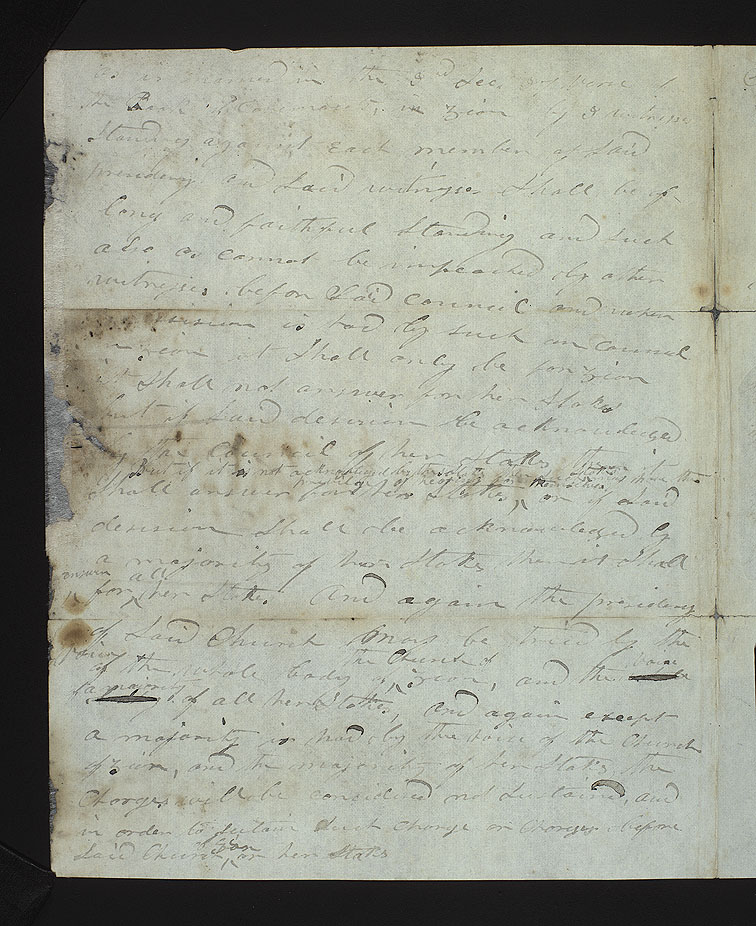 as is named in the 3rd Sec
the Book of Commandts, in Zion by 3 witnesses
standing against each member of Said
presidency and Said witnesses Shall be of
long and faithful Standing and such
also as cannot be impeached by other
witnesses before Said Council and when
desision is had by such an Council
in Zion it Shall only be for Zion
it Shall not answer for her Stakes
but if Said desision be acknowledged
by the Council of her Stakes then it
But if it is not acknowledged by the Stakes then have the
privilege of hearing for themselves
Shall answer for her Stakes, or if Said
desision Shall be acknowledged by
a majority of her Stakes then it Shall
answer all
for her Stakes. And again the presidency
of Said Church may be tried by the
voice the Church of voice
of the whole body of Zion, and the
a majority
of all her Stakes, and again except
a majority is had by the voice of the Church
of Zion, and the majority of her Stakes the
Charges will be considered not Sustained, and
in order to Sustain Such Charge or Charges before
of Zion
Said Church, or her Stakes